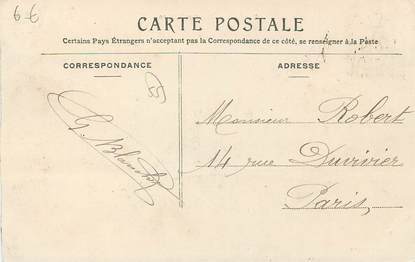 6€
CARTE POSTALE
Certains Pays Étrangers n'acceptant pas la Correspondance de ce côté, se renseigner à la Poste
CORRESPONDANCE
ADRESSE
Monsieur Robert
14 rue Duvivier
Paris
G.